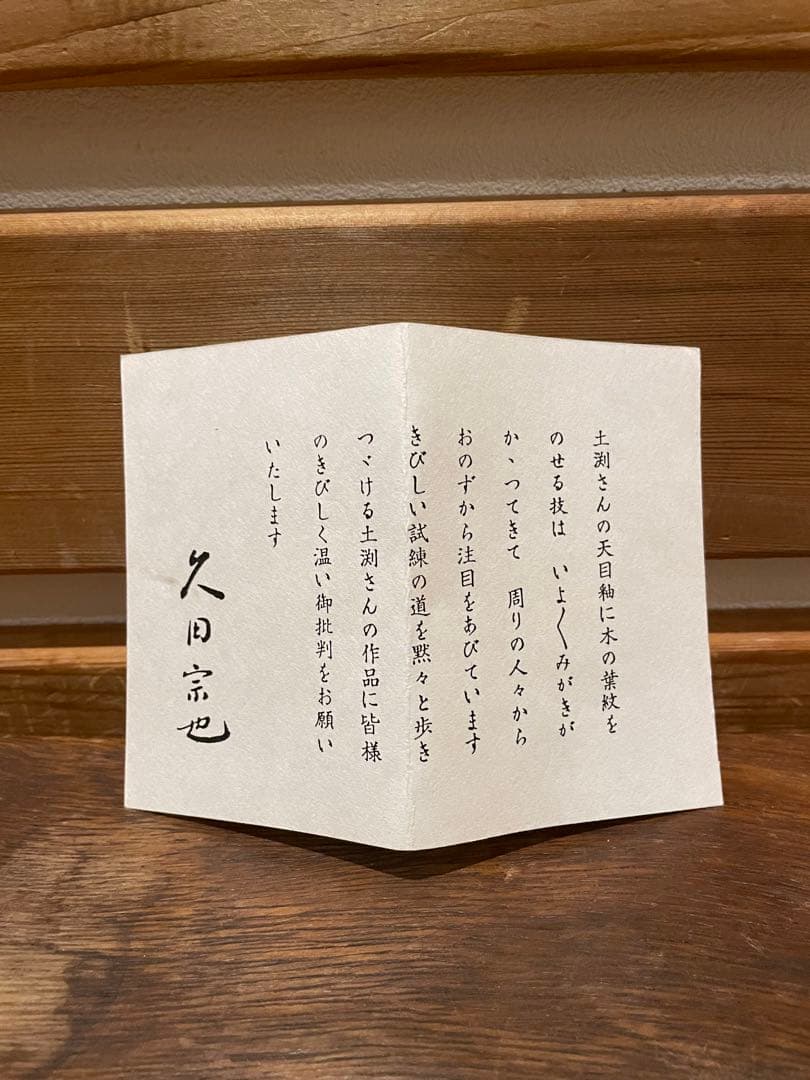 土渕さんの天目釉に木の葉紋を
のせる技は　いよ〱みがきが
かゝつてきて　周りの人々から
おのずから注目をあびています
きびしい試練の道を黙々と歩き
つゞける土渕さんの作品に皆様
のきびしく温い御批判をお願い
いたします
久田宗也